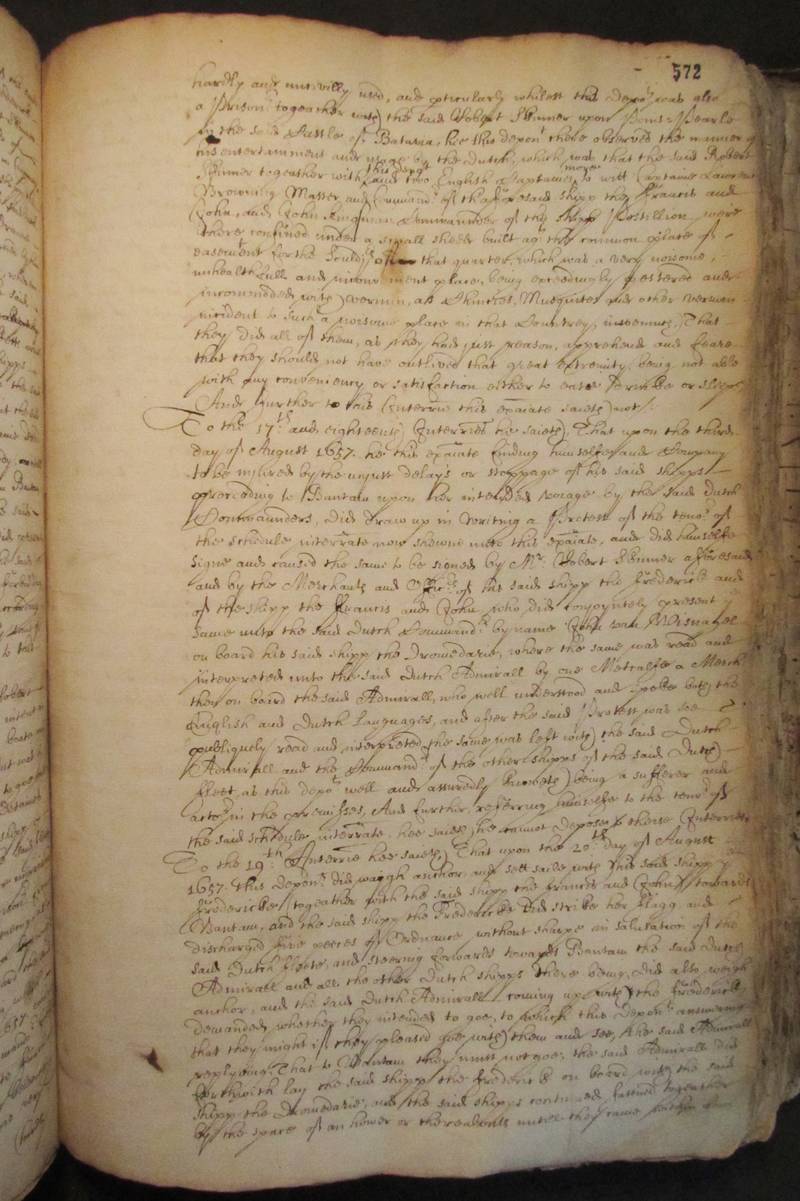 572
hardly and uncivilly used, and perticularly whilest this depont was also
a Prisonr togeather with the said Robert Skinner upon Point=Pearle
in the said Castle of Batavia, hee this deponent there observed the manner of
his entertainment and usage by the dutch, which was that the said Robert
Skinner togeather with this depont and two English Captaines more to witt Captaine Lawrence
Browning Master and Commandr of the aforesaid shipp the Francis and
John, and John Kingman Commander of the shipp Postillion were
there confined under a small shedd built agt the common place of
easement for the Souldjrs of that quarter, which was a very noysome
unhealthfull and inconvenient place, being exceedingly pestered and
incommoded with vermin, as Chinches, Musquitos and other vermin
incident to such a noisome place in that Countrey, insomuch That
they did all of them, as they had just reason, apprehend and feare
that they should not have outlived that great extremity being not able
with any conveniency or satisfaction either to eate drinke or sleepe
And further to this Interrie this exaiate saieth not/.
To the 17th and eighteenth Interries hee saieth, That upon the third
day of August 1657. he this exaiate finding himselfe and Company
to be injured by the unjust delays or stoppage of his said shipps
proceeding to Bantam upon her intended voiage by the said Dutch
Commaunders, did draw up in writing a Protest of the tenor of
the schedule interrate now showne unto this exaiate, and did himselfe
signe and caused the same to be signed by Mr. Robert Skinner aforesaid
and by the Merchants and Officrs of his said shipp the Frederick and
of the shipp the Francis and John, who did conjoyntely present
same unto the said Dutch Commandr by name John van
on board his said shipp the Dromedarie, where the same was read and
interpreted unto the said Dutch Admirall by one Metcalfe a Mercht
then on board the said Admirall, who well understood and spoke both the
English and Dutch Languages, and after the said Protest was soe
publiquely read and interpreted the same was left with the said Dutch
Admirall and the Commandrs of the other shipps of the said Dutch
fleet, as this depont well and assuredly knoweth being a sufferer and
actor in the premisses, And further, referring himselfe to the tenor of
the said schedule interrate hee saieth he cannot depose to these Interries
To the 19th Interrie hee saieth That upon the 20th day of August
1657. this deponent did waigh anchor and sett saile with his said shipp
Fredericke togeather with the said shipp the Francis and John towards
Bantam, and the said shipp the Frederick did strike her flagg and
discharged five peeces of Ordnance without sharpe in salutation of the
said Dutch fleete, and steering forwards towards Bantam the said Dutch
Admirall and all the other Dutch shipps there being, did also weigh
anchor, and the said Dutch Admirall coming up with the Frederick
demanded whether they intended to goe, to which this Deponent answering
that they might if they pleased goe with them and see, the said Admirall
replying That to Bantam they must not goe, the said Admirall did
forthwith lay the said shipp the Frederick on board with the said
shipp the Dromedarie, and the said shipps continued fastned togeather
by the space of an hower or thereabouts untill they came